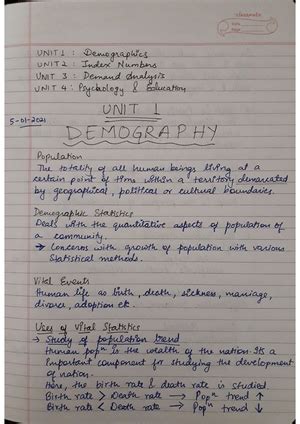 classmate
Date
Page
UNIT 1 : Demographics
UNIT 2 : Index Numbers
UNIT 3 : Demand Analysis
UNIT 4 : Psychology & Education
UNIT 1
5-01-2021
DEMOGRAPHY
Population
The totality of all human beings living at a
certain point of time within a territory demarcated
by geographical, political or cultural boundaries.
Demographic Statistics
Deals with the quantitative aspects of population of
a community.
→ Concerns with growth of population with various
Statistical methods.
Vital Events
Human life as birth, death, sickness, marriage,
divorce, adoption etc.
Uses of Vital Statistics
→ Study of population trend
Human popⁿ is the wealth of the nation. Its a
important component for studying the development
of nation.
Here, the birth rate & death rate is studied.
Birth rate > Death rate → Popⁿ trend ↑
Birth rate < Death rate → Popⁿ trend ↓